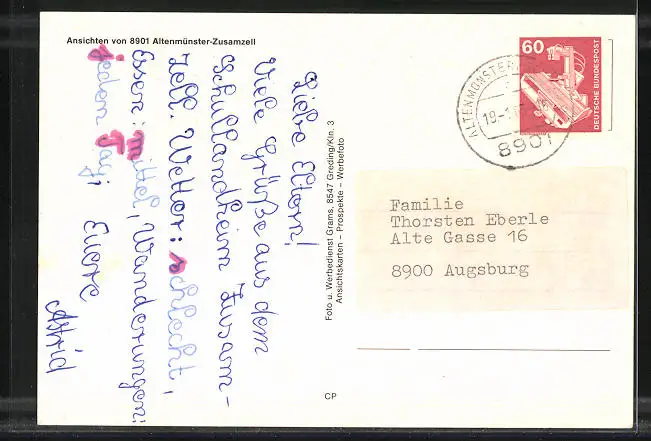 Ansichten von 8901 Altenmünster-Zusamzell
Liebe Eltern!
Viele Grüße aus dem
Schullandheim Zusam-
zell. Wetter: schlecht,
Essen: mittel, Wanderungen:
jeden Tag; Euere
Astrid
Foto u. Werbedienst Grams, 8547 Greding/Kln. 3
Ansichtskarten – Prospekte – Werbefoto
CP
60
DEUTSCHE BUNDESPOST
ALTENMÜNSTER
19-1
8901
Familie
Thorsten Eberle
Alte Gasse 16
8900 Augsburg